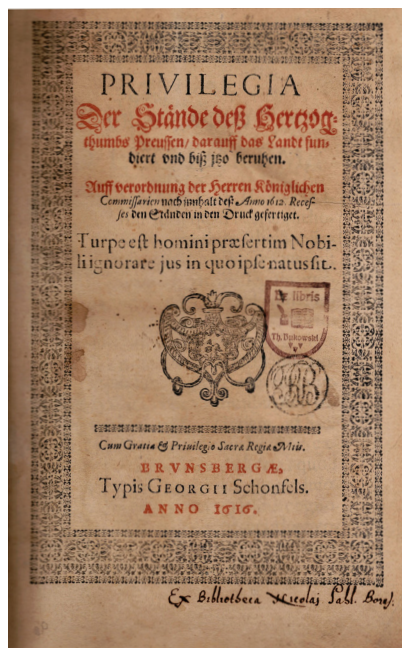 PRIVILEGIA
Der Stände deß Hertzog-
thumbs Preussen/ darauff das Landt fun-
diert vnd biß jtzo beruhen.
Auff verordnung der Herren Königlichen
Commissarien noch innhalt deß Anno 1612. Reces-
ses den Ständen in den Druck gefertiget.
Turpe est homini præsertim Nobi-
li ignorare jus in quo ipse natus sit.
Ex libris
Th. Dukowski
Cum Gratia & Priuilegio Sacræ Regiæ Mtis.
BRVNSBERGÆ,
Typis GEORGII Schonfels.
ANNO 1616.
Ex Bibliotheca Nicolaj